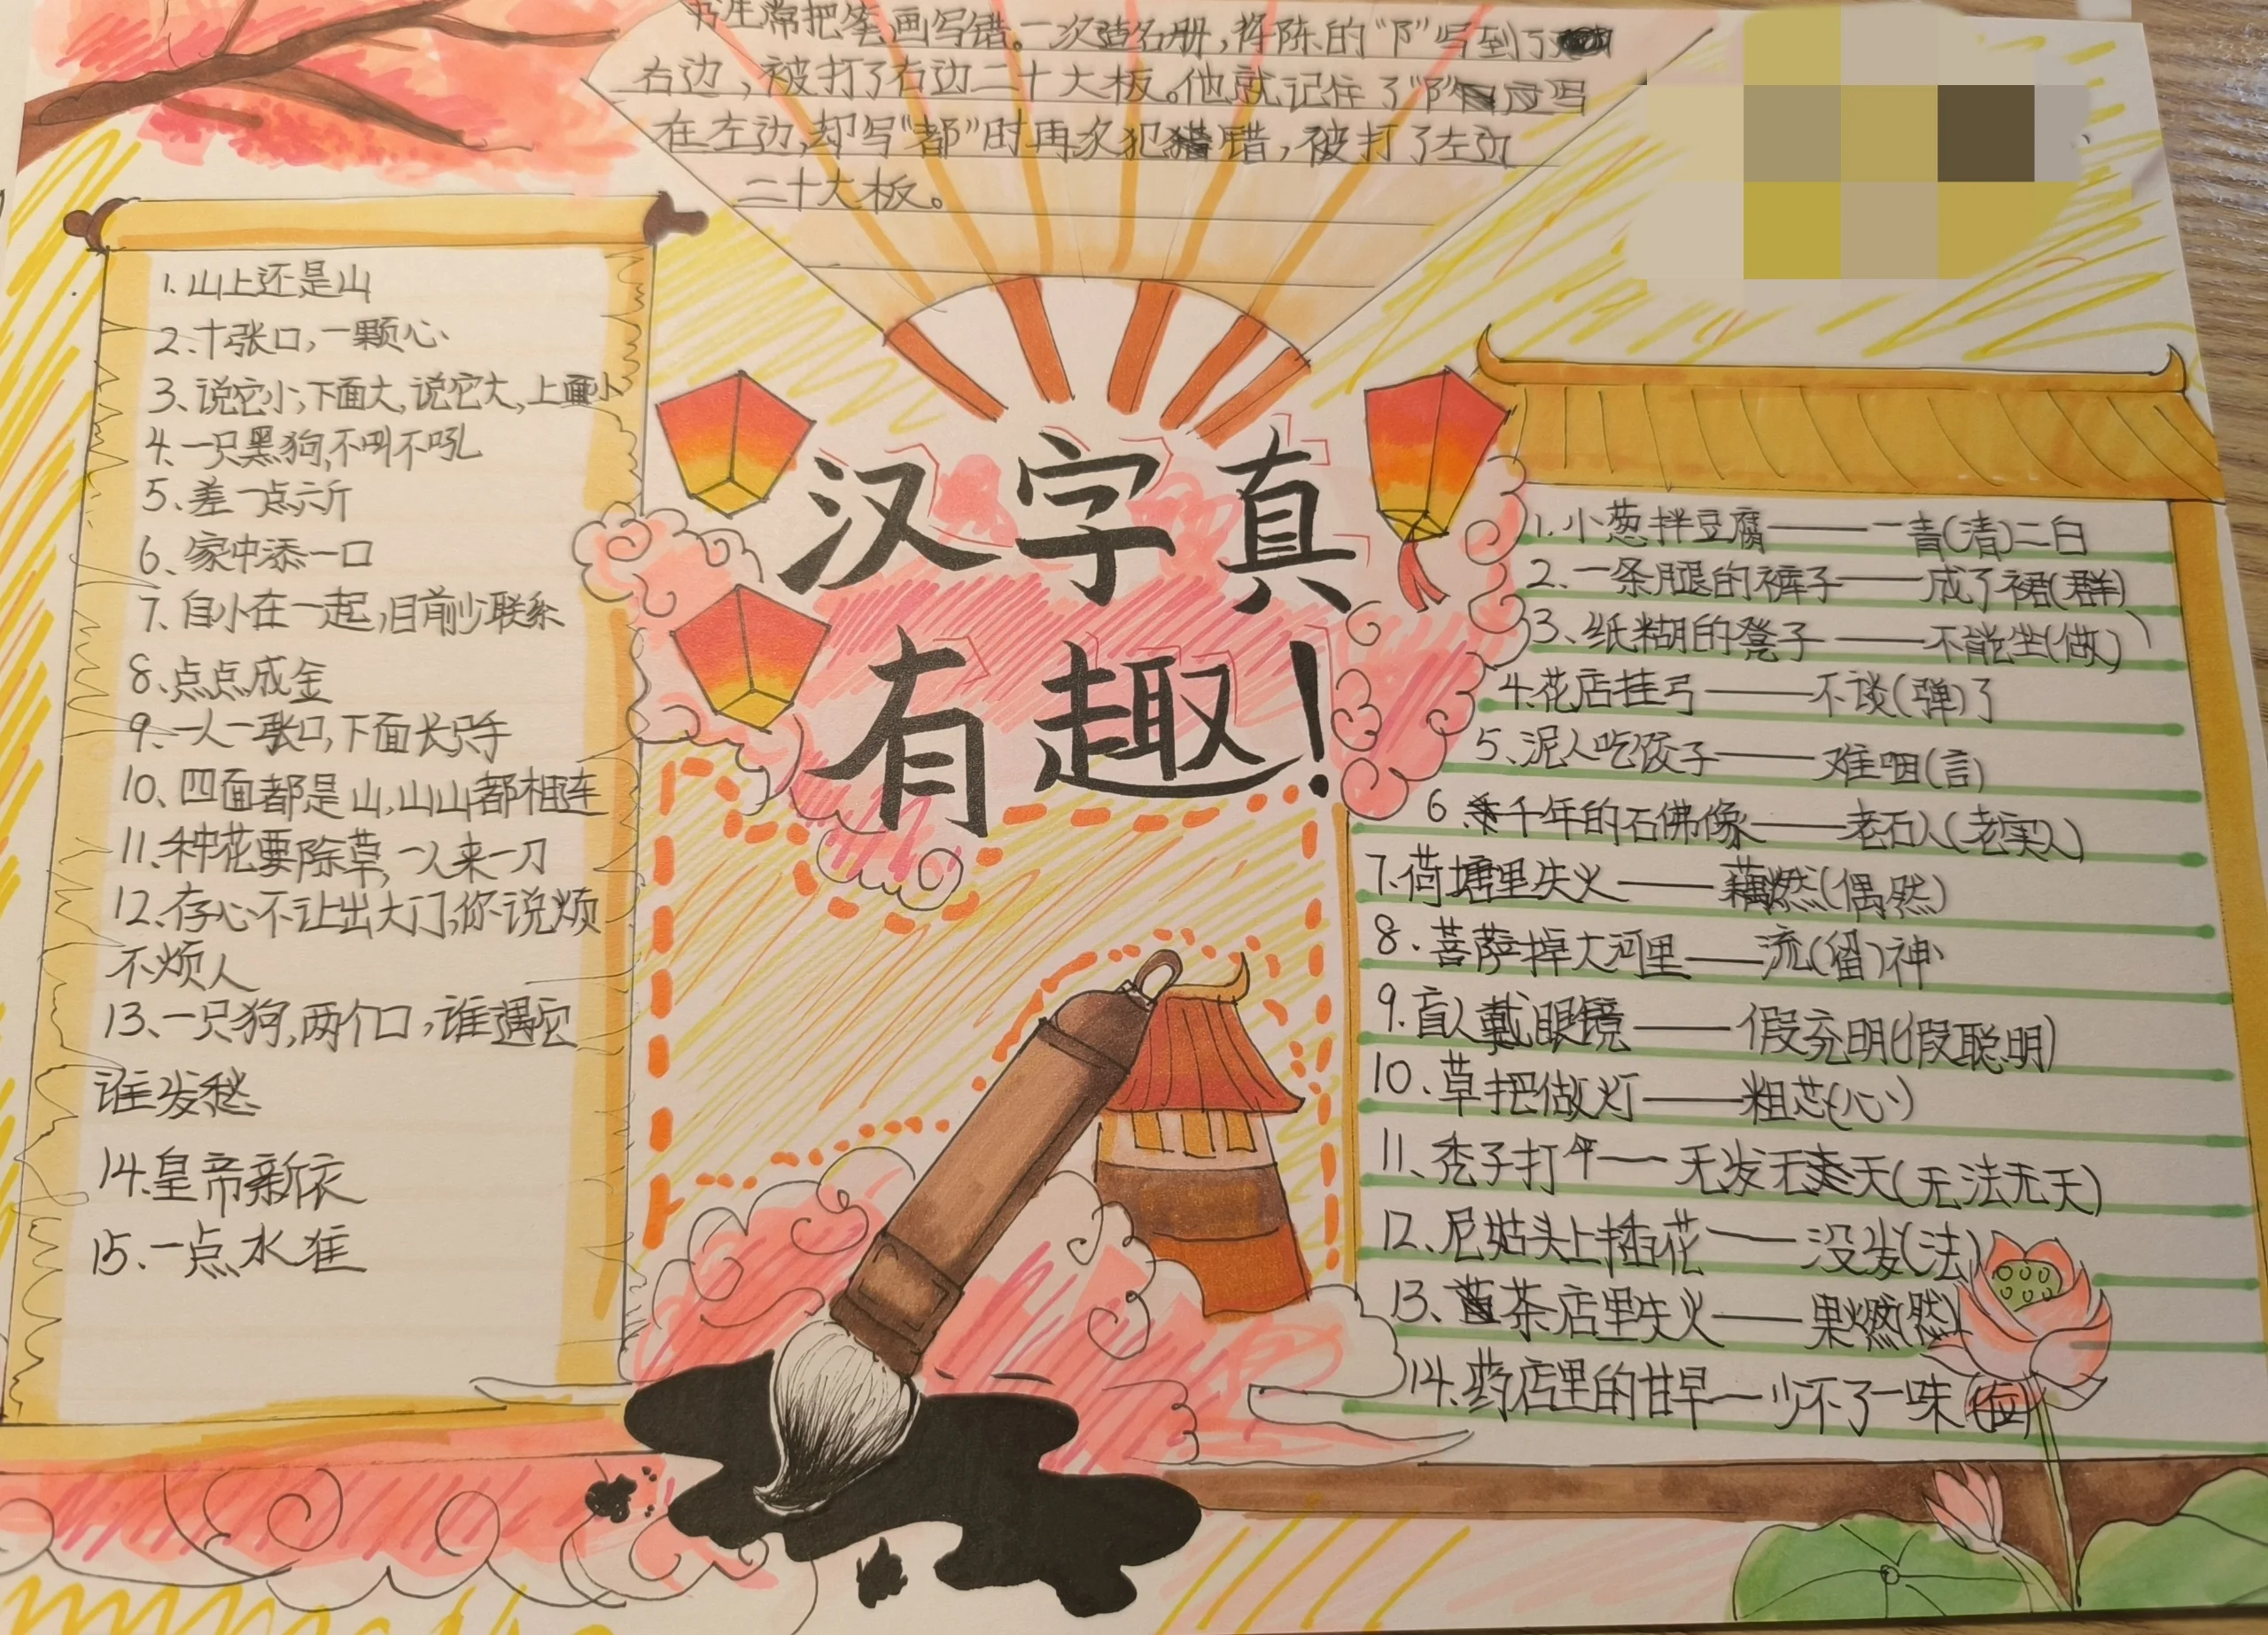 书生常把笔画写错。一次造名册，将陈的“阝”写到了
右边，被打了右边二十大板。他就记住了“阝”应写
在左边，却写“都”时再次犯错，被打了左边
二十大板。
汉字真
有趣！
1、山上还是山
2、十张口，一颗心
3、说它小，下面大，说它大，上面小
4、一只黑狗，不叫不吼
5、差一点六斤
6、家中添一口
7、自小在一起，目前少联系
8、点点成金
9、一人一张口，下面长只手
10、四面都是山，山山都相连
11、种花要除草，一人来一刀
12、存心不让出大门，你说烦
不烦人
13、一只狗，两个口，谁遇它
谁发愁
14、皇帝新衣
15、一点水准
1、小葱拌豆腐——一青(清)二白
2、一条腿的裤子——成了裙(群)
3、纸糊的凳子——不能坐(做)
4、花店挂弓——不谈(弹)了
5、泥人吃饺子——难咽(言)
6、千年的石佛像——老石人(老实人)
7、荷塘里失火——藕燃(偶然)
8、菩萨掉大河里——流(留)神
9、盲人戴眼镜——假充明(假聪明)
10、草把做灯——粗芯(心)
11、秃子打伞——无发无天(无法无天)
12、尼姑头上插花——没发(法)
13、茶店里失火——果燃(然)
14、药店里的甘早—少不了一味